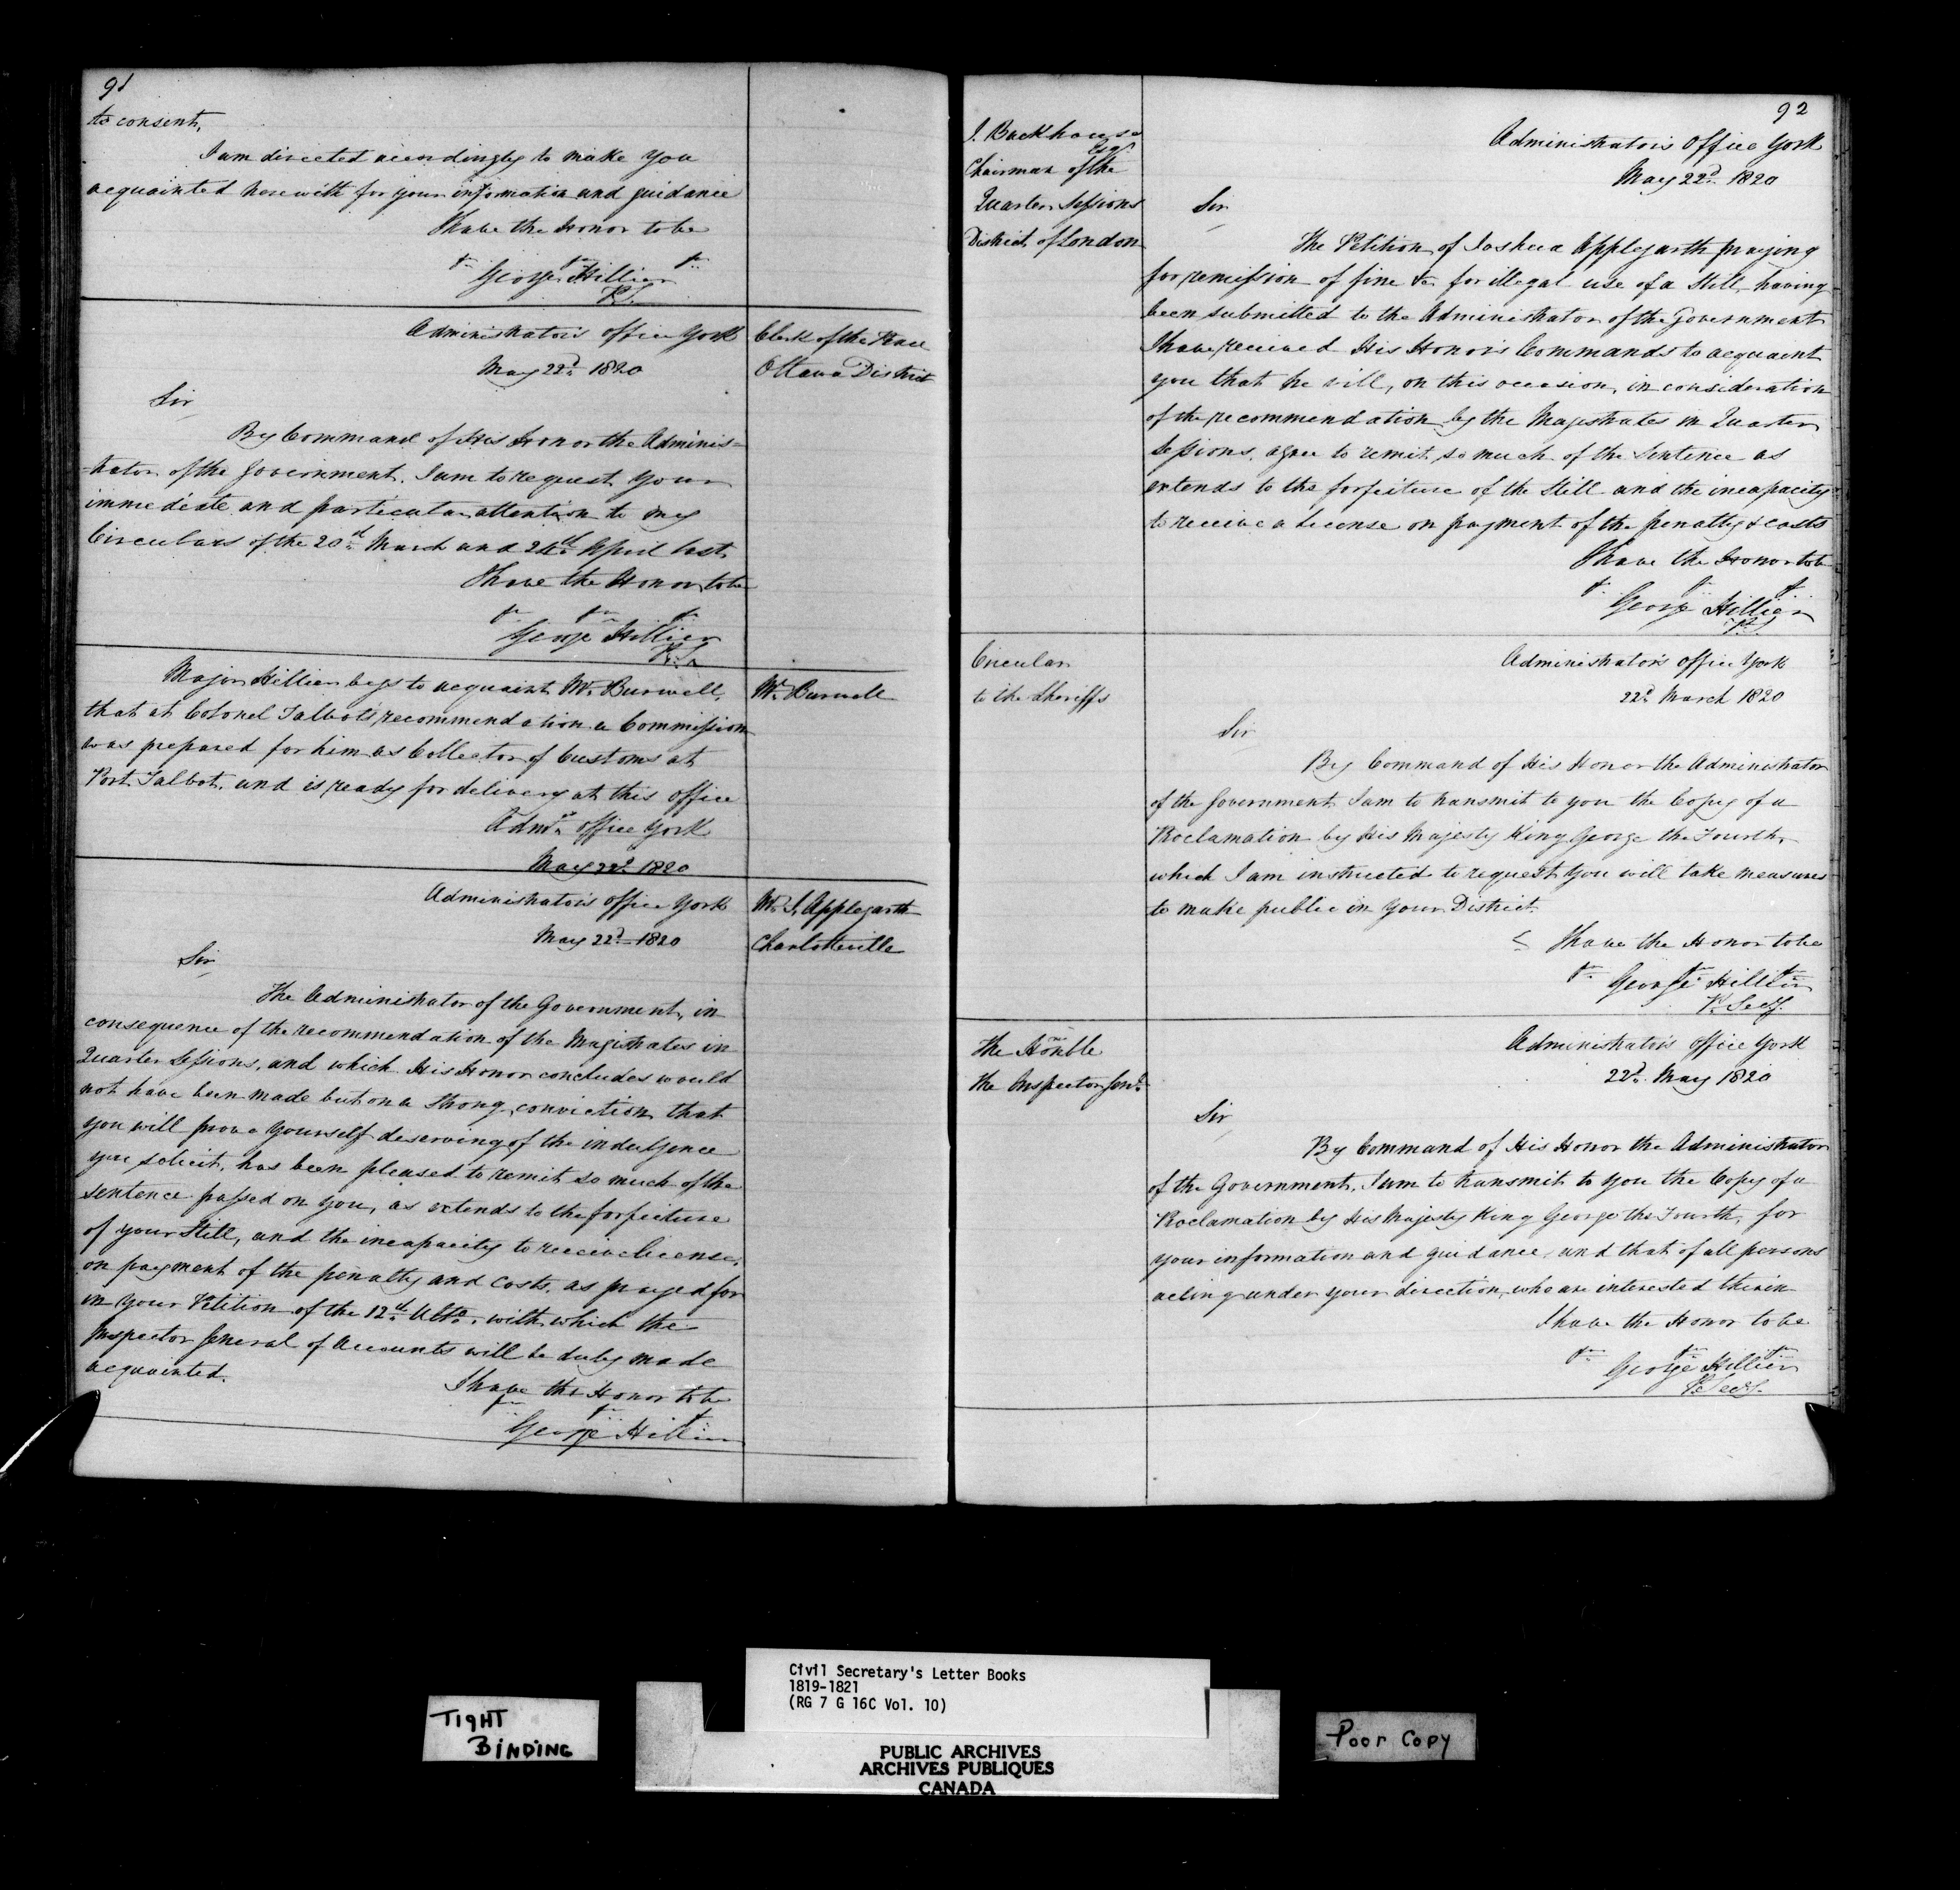 91
to consent,
I am directed accordingly to make you
acquainted herewith for your information and guidance
I have the Honor to be
George Hillier
P.S.
Administrator's office York
May 22d. 1820
Clerk of the Peace
Ottawa District
Sir
By Command of His Honor the Adminis-
-trator of the Government, I am to request your
immediate and particular attention to my
Circulars of the 20th March and 24th April last.
I have the Honor to be
George Hillier
P.S.
Major Hillier begs to acquaint Mr. Burwell,
that at Colonel Talbot's recommendation a Commission
was prepared for him as Collector of Customs at
Port Talbot, and is ready for delivery at this office
Admrs. office York
May 22d. 1820
Mr. Burwell
Administrator's office York
May 22d. 1820
Mr. J. Applegarth
Charlotteville
Sir
The Administrator of the Government, in
consequence of the recommendation of the Magistrates in
Quarter Sessions, and which His Honor concludes would
not have been made but on a strong conviction that
you will prove yourself deserving of the indulgence
you solicit, has been pleased to remit so much of the
sentence passed on you, as extends to the forfeiture
of your Still, and the incapacity to receive license,
on payment of the penalty and costs, as prayed for
in your Petition of the 12th Ulto., with which the
Inspector General of Accounts will be duly made
acquainted.
I have the Honor to be
George Hillier
92
J. Backhouse
Esqr.
Chairman of the
Quarter Sessions
District of London
Administrator's Office York
May 22d. 1820
Sir
The Petition of Joshua Applegarth praying
for remission of fine &c. for illegal use of a Still, having
been submitted to the Administrator of the Government
I have received His Honor's Commands to acquaint
you that he will, on this occasion, in consideration
of the recommendation by the Magistrates in Quarter
Sessions, agree to remit so much of the Sentence as
extends to the forfeiture of the Still and the incapacity
to receive a License on payment of the penalty & costs
I have the Honor to be
George Hillier
P.S.
Circular
to the Sheriffs
Administrator's office York
22d. March 1820
Sir
By Command of His Honor the Administrator
of the Government I am to transmit to you the Copy of a
Proclamation by His Majesty King George the Fourth,
which I am instructed to request you will take measures
to make public in your District.
I have the Honor to be
George Hillier
P. Secy.
The Honble
the Inspector Genl.
Administrator's office York
22d. May 1820
Sir
By Command of His Honor the Administrator
of the Government, I am to transmit to you the Copy of a
Proclamation by His Majesty King George the Fourth, for
your information and guidance, and that of all persons
acting under your direction, who are interested therein
I have the Honor to be
George Hillier
P. Secy.
TIGHT
BINDING
Civil Secretary's Letter Books
1819-1821
(RG 7 G 16C Vol. 10)
PUBLIC ARCHIVES
ARCHIVES PUBLIQUES
CANADA
Poor Copy